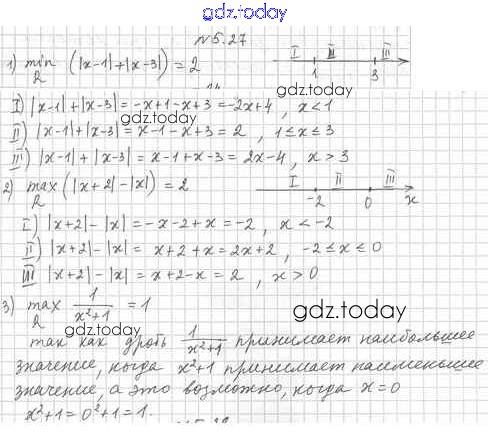 gdz.today
№5.27
1) min (|x-1|+|x-3|) = 2
R
I II III
1 3
I) |x-1|+|x-3| = -x+1-x+3 = -2x+4, x<1
gdz.today
II) |x-1|+|x-3| = x-1-x+3 = 2, 1≤x≤3
III) |x-1|+|x-3| = x-1+x-3 = 2x-4, x>3
2) max (|x+2|-|x|) = 2
R
I II III
-2 0 x
I) |x+2|-|x| = -x-2+x = -2, x<-2
II) |x+2|-|x| = x+2+x = 2x+2, -2≤x≤0
III |x+2|-|x| = x+2-x = 2, x>0
3) max 1/(x²+1) = 1
R
gdz.today
gdz.today
так как дробь 1/(x²+1) принимает наибольшее
значение, когда x²+1 принимает наименьшее
значение, а это возможно, когда x=0
x²+1=0²+1=1.